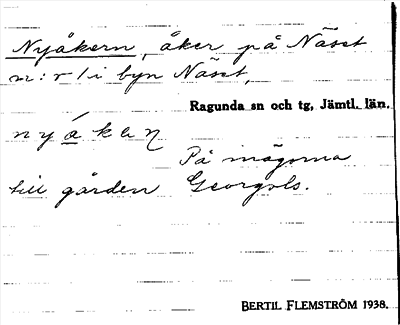 Nyåkern, åker på Näset
n:r 1 i byn Näset,
Ragunda sn och tg, Jämtl. län.
På inägorna
till gården Georgols.
BERTIL FLEMSTRÖM 1938.